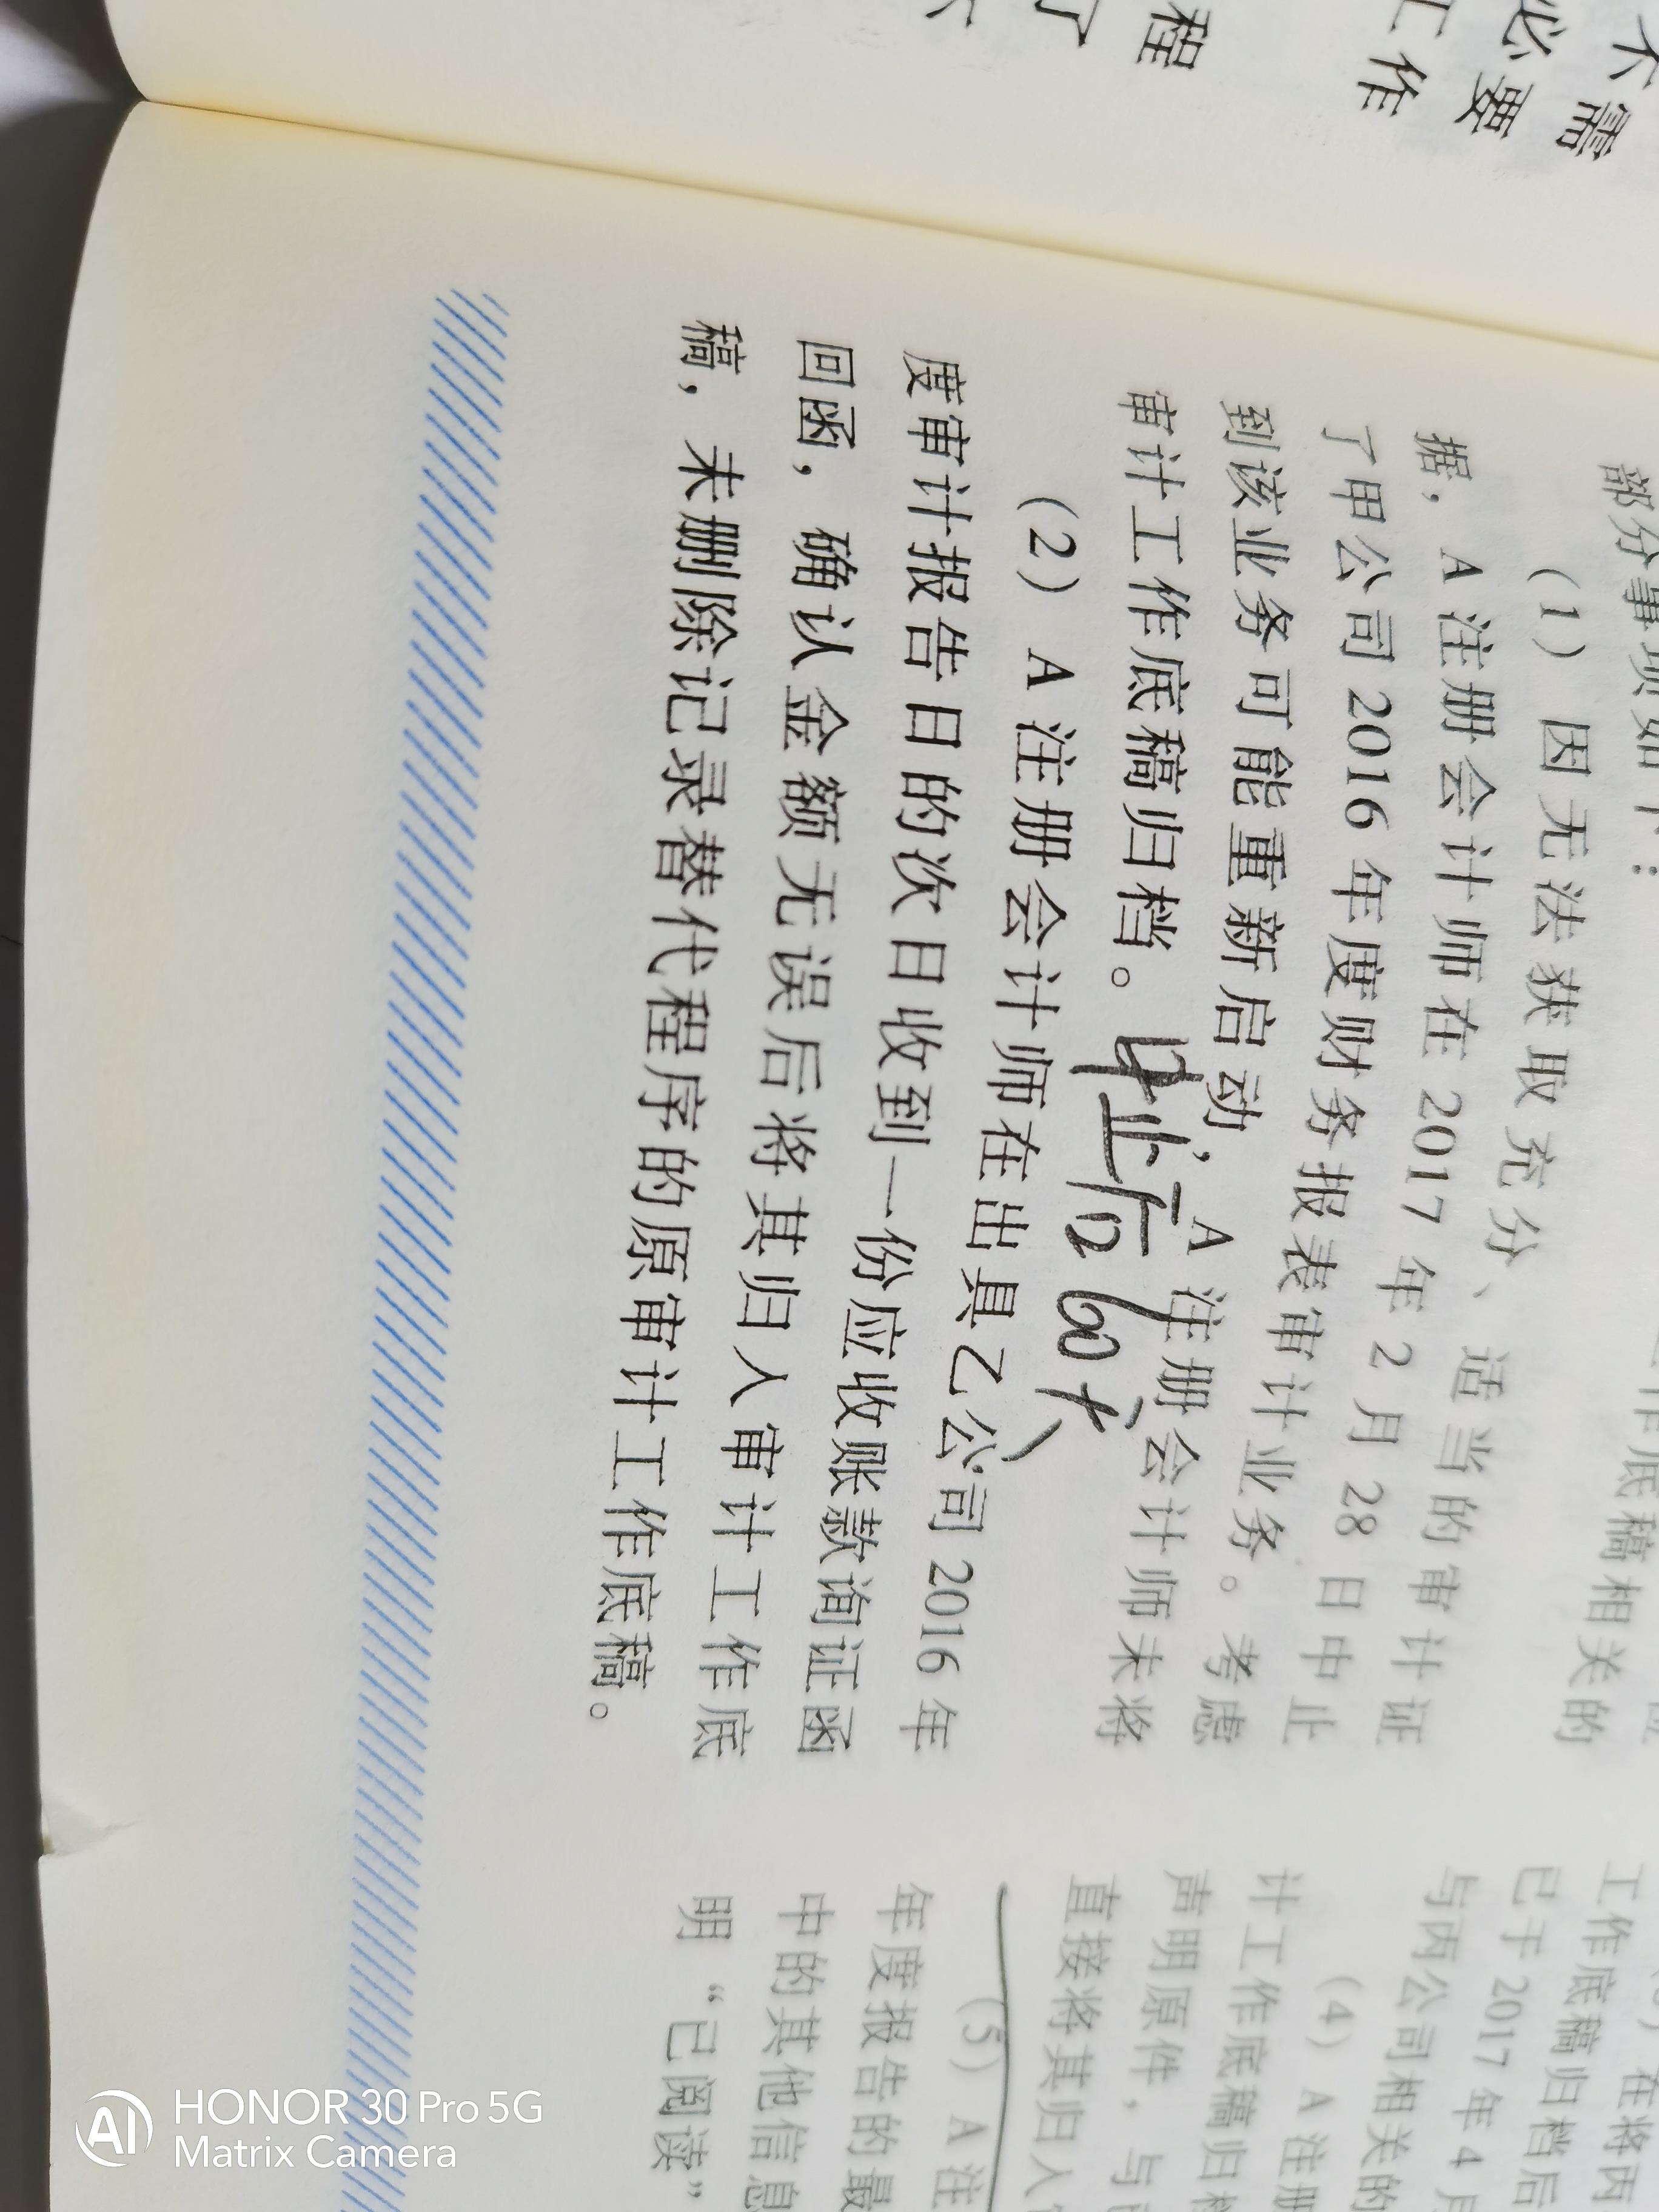 不需
必要
工作
程
了
部分事项如下：
（1）因无法获取充分、适当的审计证
据，A 注册会计师在 2017 年 2 月 28 日中止
了甲公司 2016 年度财务报表审计业务。考虑
到该业务可能重新启动，A 注册会计师未将
审计工作底稿归档。
中止后60天
（2）A 注册会计师在出具乙公司 2016 年
度审计报告日的次日收到一份应收账款询证函
回函，确认金额无误后将其归入审计工作底
稿，未删除记录替代程序的原审计工作底稿。
工作底稿相关的
工作底稿归档后
已于 2017 年 4 月
与丙公司相关的
（4）A 注册
计工作底稿归档
声明原件，与
直接将其归入
（5）A 注
年度报告的最
中的其他信息
明“已阅读”
HONOR 30 Pro 5G
Matrix Camera
AI